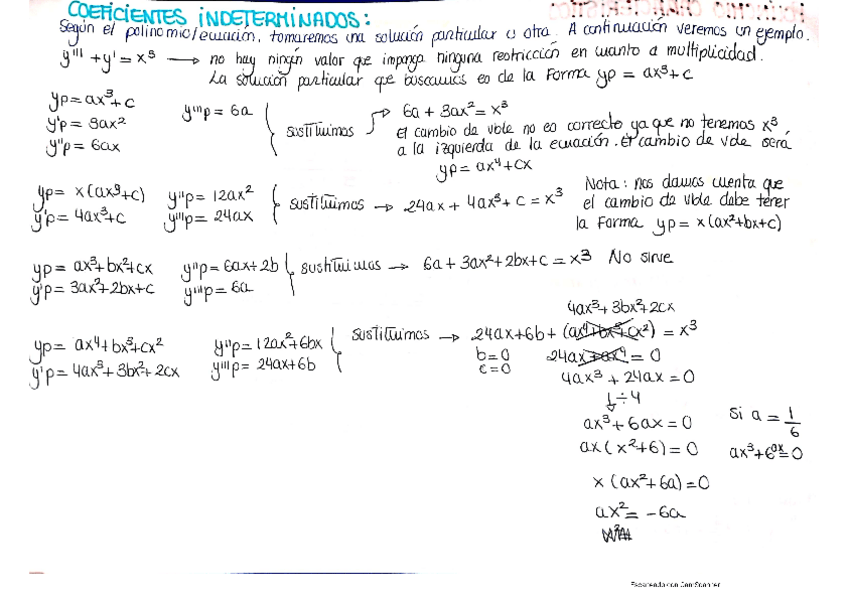 COEFICIENTES INDETERMINADOS:
Según el polinomio/ecuación, tomaremos una solución particular u otra. A continuación veremos un ejemplo.
y''' + y' = x³ → no hay ningún valor que imponga ninguna restricción en cuanto a multiplicidad.
La solución particular que buscamos es de la Forma yp = ax³+c
yp = ax³+c
y'p = 3ax²
y''p = 6ax
y'''p = 6a
sustituimos
6a + 3ax² = x³
El cambio de vble no es correcto ya que no tenemos x³
a la izquierda de la ecuación. El cambio de vble será
yp = ax⁴+cx
yp = x(ax³+c)
y'p = 4ax³+c
y''p = 12ax²
y'''p = 24ax
sustituimos → 24ax + 4ax³ + c = x³
Nota: nos damos cuenta que
el cambio de vble debe tener
la Forma yp = x(ax²+bx+c)
yp = ax³+bx²+cx
y'p = 3ax²+2bx+c
y''p = 6ax+2b
y'''p = 6a
sustituimos → 6a + 3ax²+2bx+c = x³ No sirve
yp = ax⁴+bx³+cx²
y'p = 4ax³+3bx²+2cx
y''p = 12ax²+6bx
y'''p = 24ax+6b
4ax³+3bx²+2cx
sustituimos → 24ax+6b + (ax⁴+bx³+cx²) = x³
b=0
c=0
24ax+ax⁴ = 0
4ax³ + 24ax = 0
÷4
ax³ + 6ax = 0
ax(x²+6) = 0
x(ax²+6a) = 0
ax² = -6a
Si a = 1/6
ax³+6ax=0
Escaneado con CamScanner